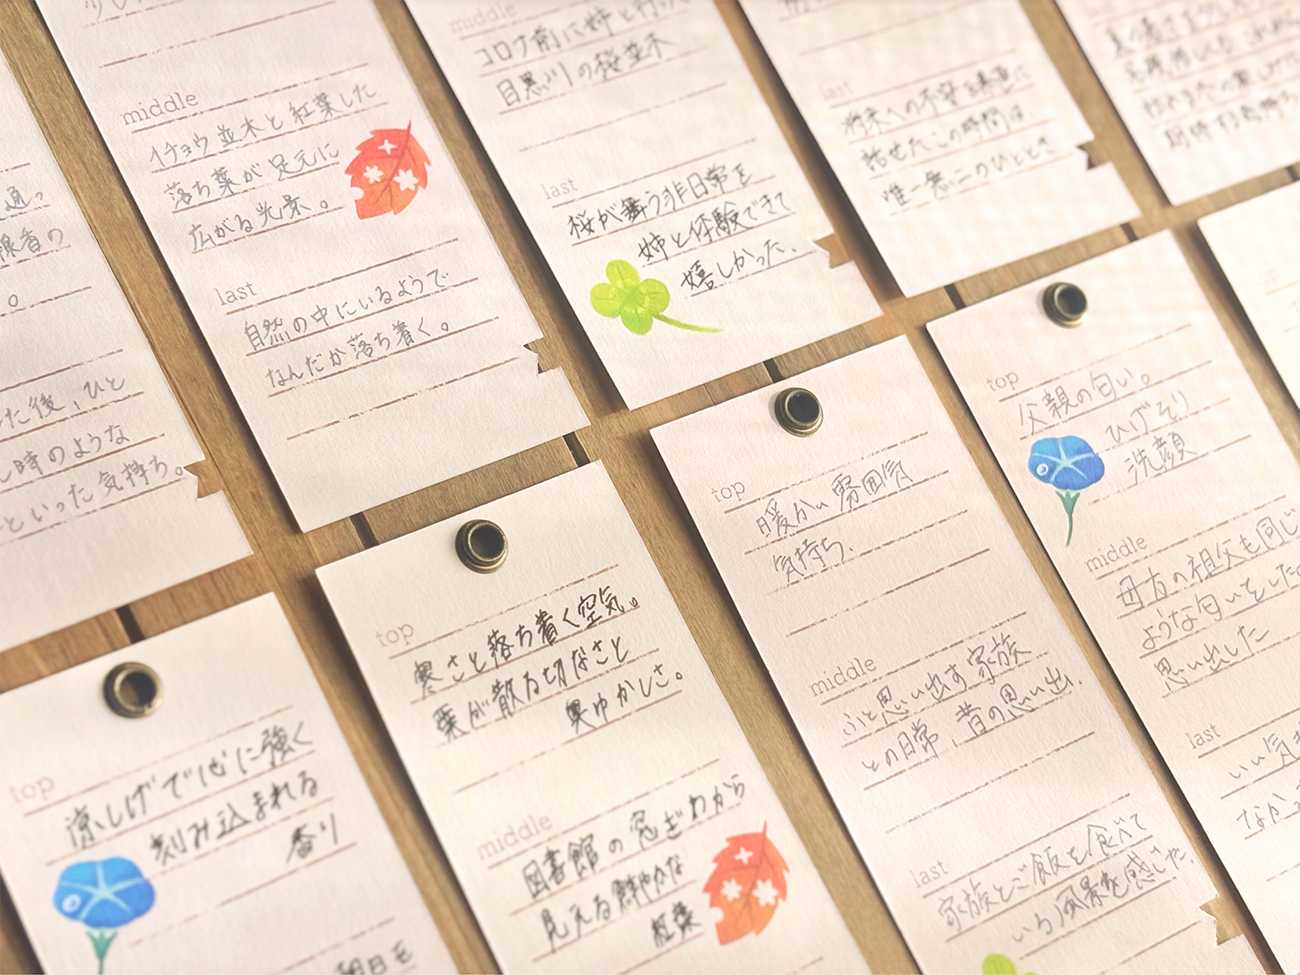 middle
イチョウ並木と紅葉した
落ち葉が足元に
広がる光景。
last
自然の中にいるようで
なんだか落ち着く。
middle
コロナ前に姉と行った
目黒川の桜並木
last
桜が舞う非日常を
姉と体験できて
嬉しかった.
last
将来への不安を
話せたこの時間は
唯一無二のひととき
通っ
線香の
。
た後、ひと
時のような
といった気持ち。
top
涼しげで心に強く
刻み込まれる
香り
朝日を
top
寒さと落ち着く空気。
葉が散る切なさと
奥ゆかしさ。
middle
図書館の窓ぎわから
見える鮮やかな
紅葉
top
暖かい雰囲気
気持ち.
middle
ふと思い出す家族
との日常、昔の思い出.
last
家族とご飯を食べて
いる風景を感じた.
top
父親の匂い。
ひげそり
洗顔
middle
母方の祖父も同じ
ような匂いをした
思い出した
last
いい気
なか